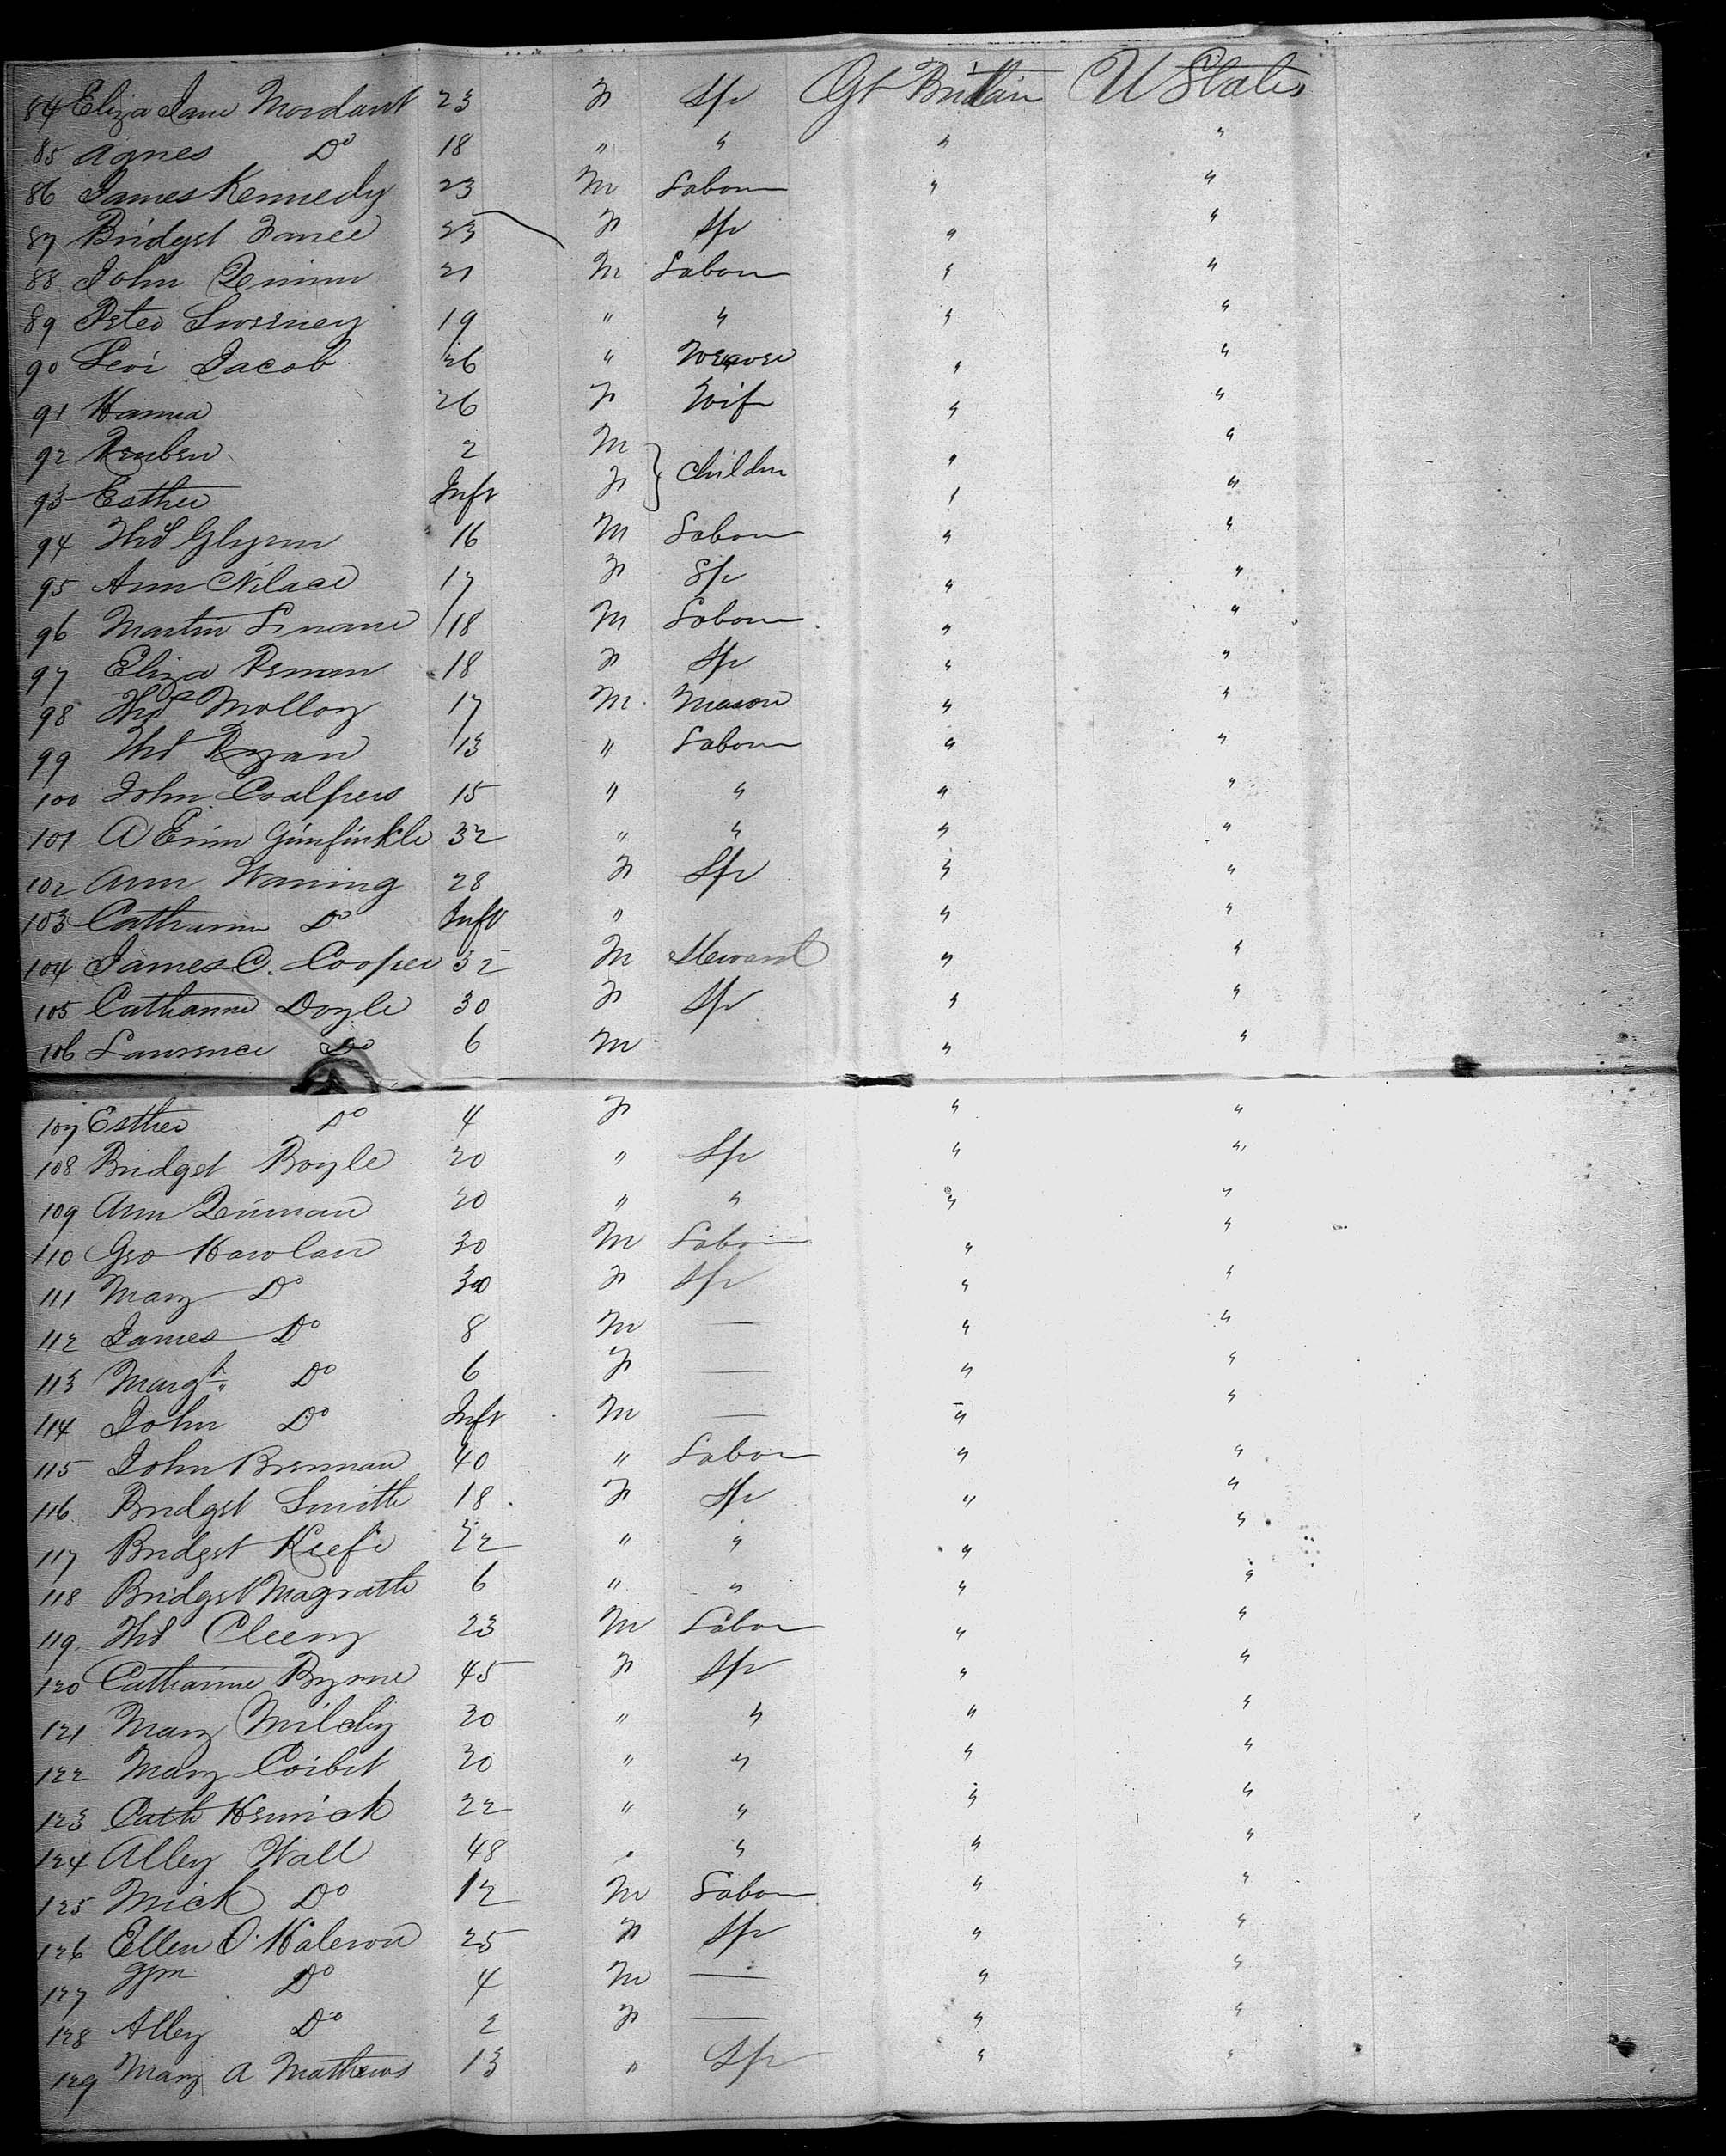 84 Eliza Jane Mordant 23 F Sp Gt Brittain U States
85 Agnes Do 18 " " " "
86 James Kennedy 23 M Labour " "
87 Bridget 23 F Sp " "
88 John 21 M Labour " "
89 Peter Sweeney 19 " " " "
90 Levi Jacob 26 " Weaver " "
91 Hanna 26 F Wife " "
92 Reuben 2 M } Childn " "
93 Esther Inft F " "
94 Thos Glynn 16 M Labour " "
95 Ann 17 F Sp " "
96 Martin 18 M Labour " "
97 Eliza 18 F Sp " "
98 Thos Molloy 17 M Mason " "
99 Thos Ryan 13 " Labour " "
100 John 15 " " " "
101 32 " " " "
102 Ann Waning 28 F Sp " "
103 Catharine Do Inft " " "
104 James C. Cooper 32 M Steward " "
105 Catharine Doyle 30 F Sp " "
106 Lawrence Do 6 M " "
107 Esther Do 4 F " "
108 Bridget Boyle 20 " Sp " "
109 Ann 20 " " " "
110 Geo Hawlan 30 M Labour " "
111 Mary Do 30 F Sp " "
112 James Do 8 M — " "
113 Margt Do 6 F — " "
114 John Do Inft M — " "
115 John Brennan 40 " Labour " "
116 Bridget Smith 18 F Sp " "
117 Bridget Keefe 22 " " " "
118 Bridget Magrath 6 " " " "
119 Thos Cleery 23 M Labour " "
120 Catharine Byrne 45 F Sp " "
121 Mary 20 " " " "
122 Mary Coibet 20 " " " "
123 Cath 22 " " " "
124 Alley Wall 48 " " " "
125 Mick Do 12 M Labour " "
126 Ellen 25 F Sp " "
127 Do 4 M — " "
128 Alley Do 2 F — " "
129 Mary A Mathews 13 " Sp " "